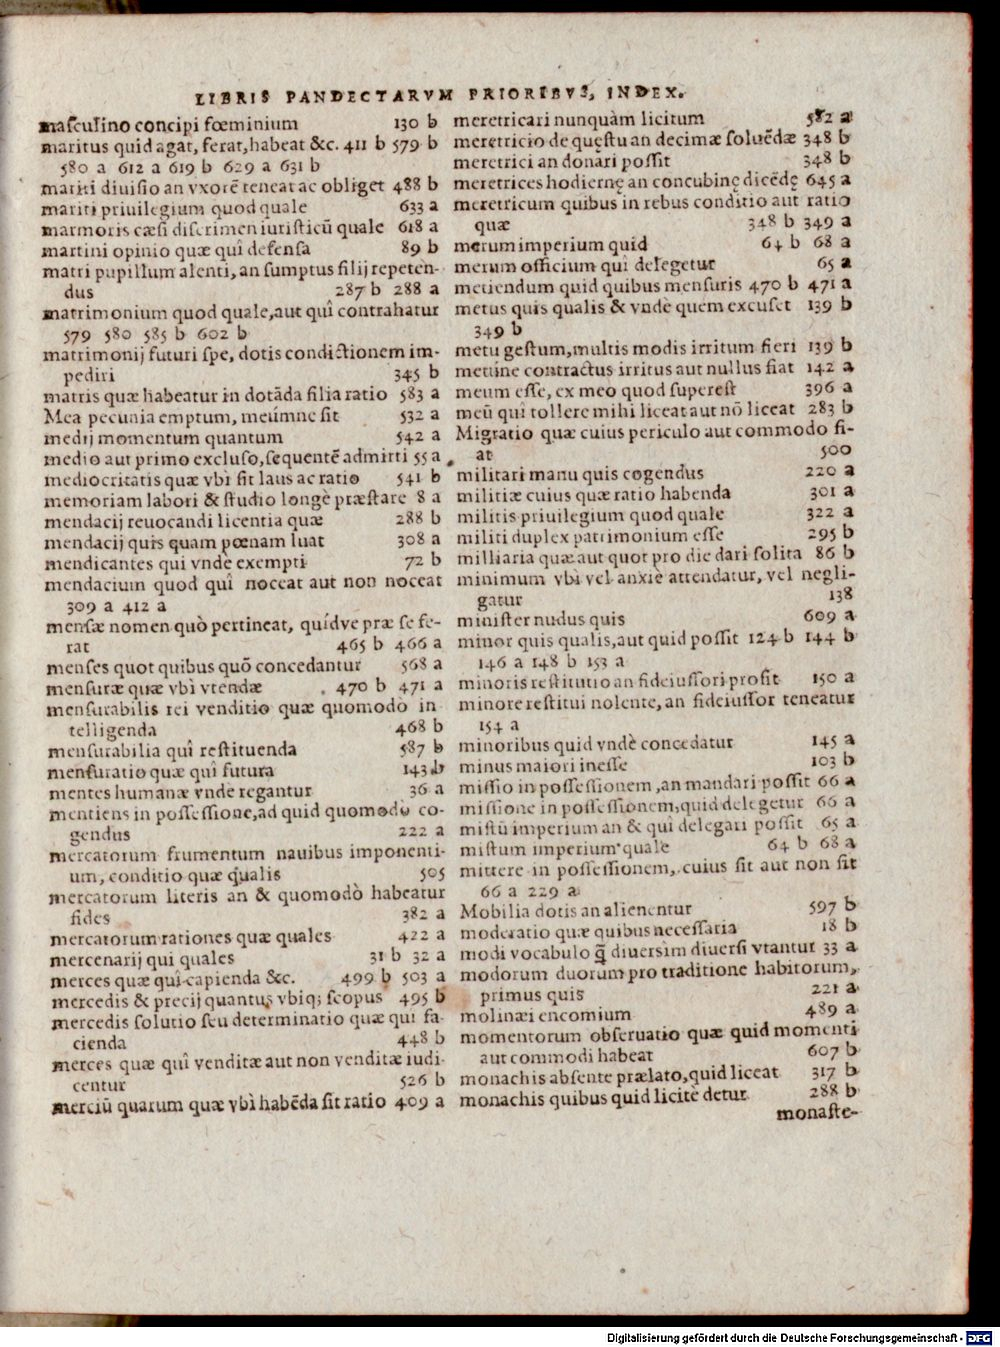 LIBRIS PANDECTARVM PRIORIBVS, INDEX.
masculino concipi fœminium 130 b
maritus quid agat, ferat, habeat &c. 411 b 579 b
580 a 612 a 619 b 629 a 631 b
mariti diuisio an vxorē teneat ac obliget 488 b
mariti priuilegium quod quale 633 a
marmoris cæsi discrimen iuristicū quale 618 a
martini opinio quæ quî defensa 89 b
matri pupillum alenti, an sumptus filij repeten-
dus 287 b 288 a
matrimonium quod quale, aut quî contrahatur
579 580 585 b 602 b
matrimonij futuri spe, dotis condictionem im-
pediri 345 b
matris quæ habeatur in dotāda filia ratio 583 a
Mea pecunia emptum, meúmne sit 532 a
medij momentum quantum 542 a
medio aut primo excluso, sequentē admitti 55 a
mediocritatis quæ vbi sit laus ac ratio 541 b
memoriam labori & studio longè præstare 8 a
mendacij reuocandi licentia quæ 288 b
mendacij quis quam pœnam luat 308 a
mendicantes qui vnde exempti 72 b
mendacium quod quî noceat aut non noceat
309 a 412 a
mensæ nomen quò pertineat, quidve præ se fe-
rat 465 b 466 a
menses quot quibus quō concedantur 568 a
mensuræ quæ vbi vtendæ 470 b 471 a
mensurabilis rei venditio quæ quomodò in
telligenda 468 b
mensurabilia quî restituenda 587 b
mensuratio quæ quî futura 143 b
mentes humanæ vnde regantur 36 a
mentiens in possessione, ad quid quomodo co-
gendus 222 a
mercatorum frumentum nauibus imponenti-
um, conditio quæ qualis 505
mercatorum literis an & quomodò habeatur
fides 382 a
mercatorum rationes quæ quales 422 a
mercenarij qui quales 31 b 32 a
merces quæ quî capienda &c. 499 b 503 a
mercedis & precij quantus vbiq; scopus 495 b
mercedis solutio seu determinatio quæ qui fa-
cienda 448 b
merces quæ quî venditæ aut non venditæ iudi-
centur 526 b
merciū quarum quæ vbi habēda sit ratio 409 a
meretricari nunquàm licitum 582 a
meretricio de quęstu an decimæ soluēdæ 348 b
meretrici an donari possit 348 b
meretrices hodiernę an concubinę dicēdę 645 a
meretricum quibus in rebus conditio aut ratio
quæ 348 b 349 a
merum imperium quid 64 b 68 a
merum officium quî delegetur 65 a
metiendum quid quibus mensuris 470 b 471 a
metus quis qualis & vndè quem excuset 139 b
349 b
metu gestum, multis modis irritum fieri 139 b
metúne contractus irritus aut nullus fiat 142 a
meum esse, ex meo quod superest 396 a
meū quî tollere mihi liceat aut nō liceat 283 b
Migratio quæ cuius periculo aut commodo fi-
at 500
militari manu quis cogendus 220 a
militiæ cuius quæ ratio habenda 301 a
militis priuilegium quod quale 322 a
militi duplex patrimonium esse 295 b
milliaria quæ aut quot pro die dari solita 86 b
minimum vbi vel anxiè attendatur, vel negli-
gatur 138
minister nudus quis 609 a
minor quis qualis, aut quid possit 124 b 144 b
146 a 148 b 153 a
minoris restitutio an fideiussori prosit 150 a
minore restitui nolente, an fideiussor teneatur
154 a
minoribus quid vndè concedatur 145 a
minus maiori inesse 103 b
missio in possessionem, an mandari possit 66 a
missione in possessionem, quid delegetur 66 a
mistū imperium an & quî delegari possit 65 a
mistum imperium quale 64 b 68 a
mittere in possessionem, cuius sit aut non sit
66 a 229 a
Mobilia dotis an alienentur 597 b
moderatio quæ quibus necessaria 18 b
modi vocabulo q̄ diuersim diuersi vtantur 33 a
modorum duorum pro traditione habitorum,
primus quis 221 a
molinæi encomium 489 a
momentorum obseruatio quæ quid momenti
aut commodi habeat 607 b
monachis absente prælato, quid liceat 317 b
monachis quibus quid licitè detur 288 b
monaste-
Digitalisierung gefördert durch die Deutsche Forschungsgemeinschaft - DFG